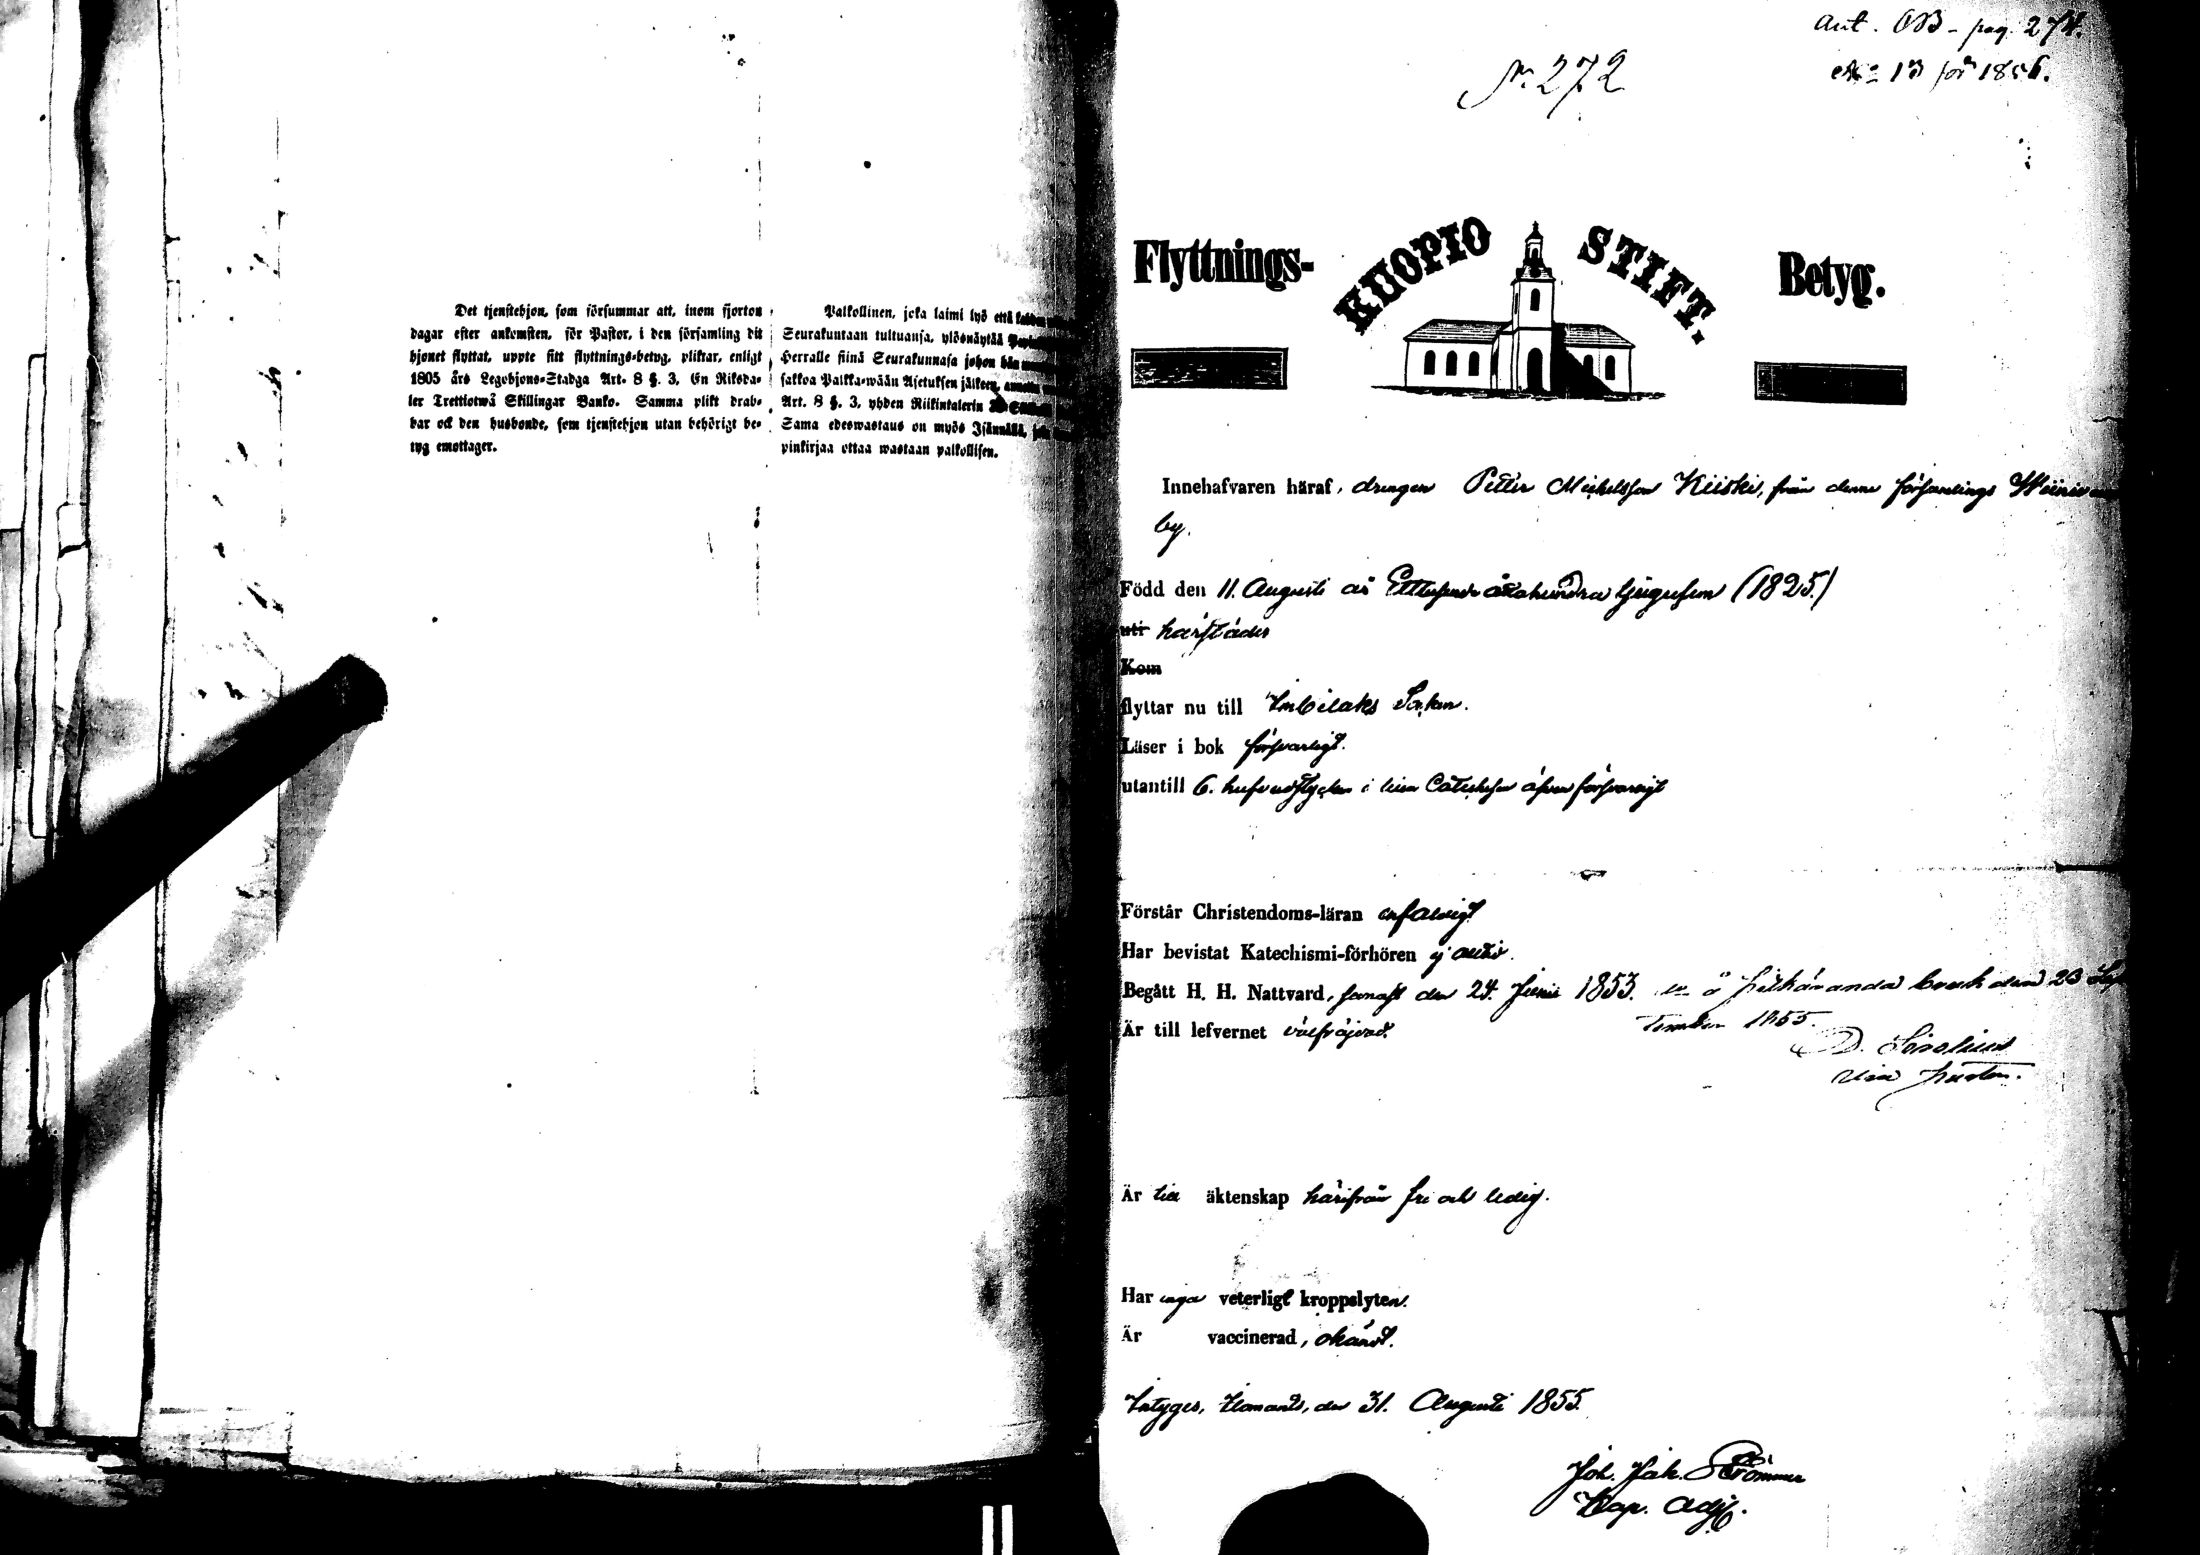 Det tjenstehjon, som försummar att, inom fjorton
dagar efter ankomsten, för Pastor, i den församling dit
hjonet flyttat, uppte sitt flyttnings-betyg, pliktar, enligt
1805 års Legohjons-Stadga Art. 8 §. 3, En Riksda-
ler Trettiotwå Skillingar Banko. Samma plikt drab-
bar ock den husbonde, som tjenstehjon utan behörigt be-
tyg emottager.
Palkollinen, joka laimi lyö että
Seurakuntaan tultuansa, ylösnäytää
Herralle siinä Seurakunnasa johon hän
sakkoa Palkka-wään Asetuksen jälkeen,
Art. 8 §. 3, yhden Riikintalerin
Sama edeswastaus on myös Isännällä,
pinkirjaa ottaa wastaan palkollisen.
ant. OB - pag. 274.
No 13 för 1856.
N. 272
Flyttnings- KUOPIO STIFT. Betyg.
Innehafvaren häraf, drengen Petter Michelsson Kiiski, från denna församlings
by.
Född den 11. Augusti år Ettusende åttahundra tjugufem (1825.)
uti härstädes
Kom
flyttar nu till Imbilaks Socken.
Läser i bok försvarligt.
utantill 6. hufvudstycken i lilla Catechesen äfven försvarligt
Förstår Christendoms-läran enfaldigt
Har bevistat Katechismi-förhören ej alltid.
Begått H. H. Nattvard, senast den 24. Junii 1853. å Pitkäranda bruk den 23 Sep
Är till lefvernet välfräjdad. tember 1855.
Är till äktenskap härifrån fri och ledig.
Har inga veterligt kroppslyten.
Är vaccinerad, okändt.
Intyges, Ilomants, den 31. Augusti 1855.
Joh. Jak. Strömmer
Cap. Adj.